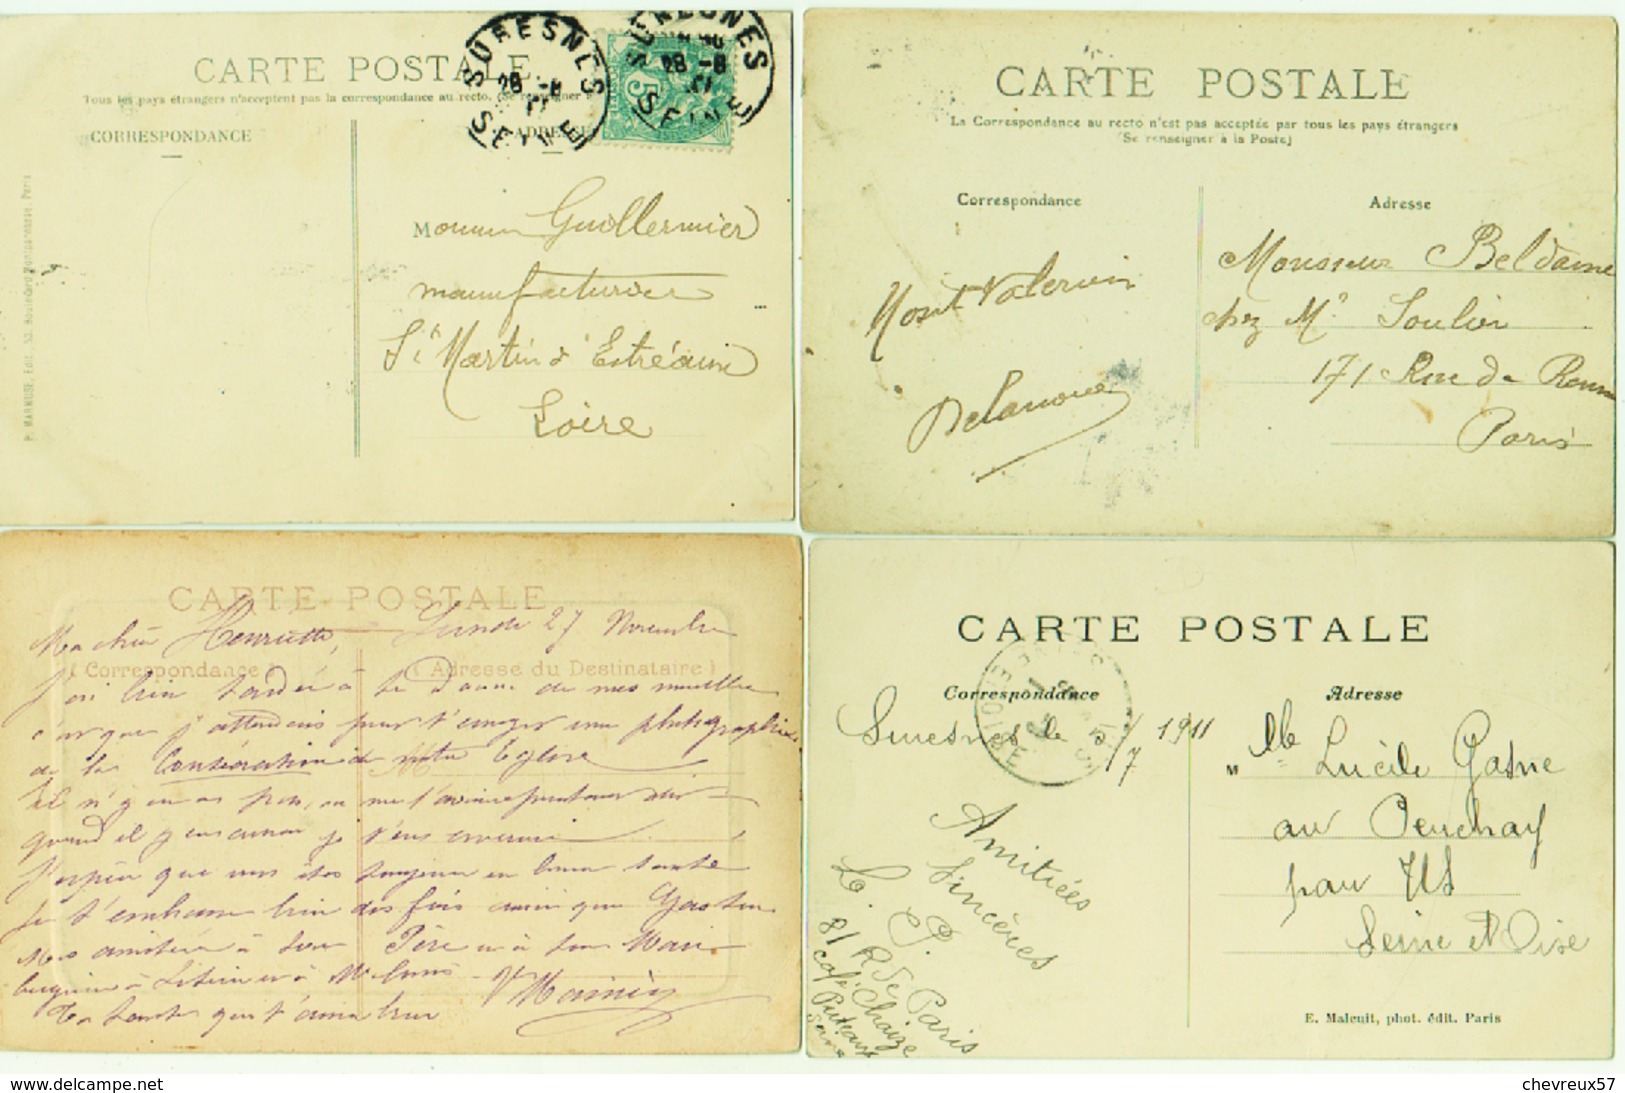 CARTE POSTALE
Tous les pays étrangers n'acceptent pas la correspondance au recto. (Se renseigner à
CORRESPONDANCE
ADRESSE
SURESNES
28 -8
11
SEINE
SURESNES
28 -8
11
SEINE
5
P. MARMUSE, Edit. 53, Boulevard Montparnasse, Paris
Guillermier
manufacturier
St Martin d'Estréaux
Loire
CARTE POSTALE
La Correspondance au recto n'est pas acceptée par tous les pays étrangers
(Se renseigner à la Poste)
Correspondance
Adresse
Mont Valerien
Delanoue
Monsieur Beldame
chez Mr Soulier
171 Rue de
Paris
CARTE POSTALE
(Correspondance)
(Adresse du Destinataire)
Ma chère Henriette, Lundi 27 Novembre
J'ai bien tardé à te donner de mes nouvelles
c'est que j'attendais pour t'envoyer une photographie
de la Consécration de notre Eglise
quand il y en aura je t'en enverrai
J'espère que vous êtes toujours en bonne santé
Je t'embrasse bien des fois ainsi que Gaston
Mes amitiés à ton Père et à ton Mari
Ta tante qui t'aime bien
CARTE POSTALE
Correspondance
Adresse
Suresnes le 5/7 1911
Amitiées
Sincères
L. P.
81 R de Paris
Puteaux
Seine
M lle Lucile Gasne
au
par US
Seine et Oise
E. Malcuit, phot. édit. Paris
www.delcampe.net
chevreux57